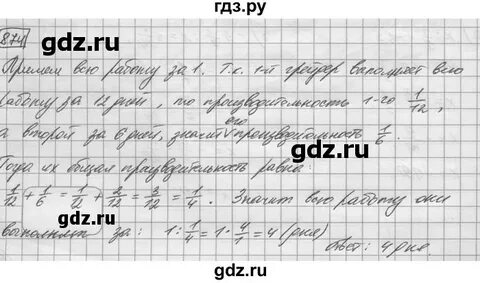 гдз.ру
874
gdz.ru gdz.ru
Примем всю работу за 1. Т.к. 1-й грейдер выполняет всю
работу за 12 дней, то производительность 1-го 1/12,
gdz.ru gdz.ru
а второй за 6 дней, значит его производительность 1/6.
Тогда их общая производительность равна:
gdz.ru gdz.ru
1/12 + 1/6 = 1/12 + 2/12 = 3/12 = 1/4. Значит всю работу они
выполнят за: 1 : 1/4 = 1 · 4/1 = 4 (дня)
gdz.ru gdz.ru
Ответ: 4 дня.
gdz.ru